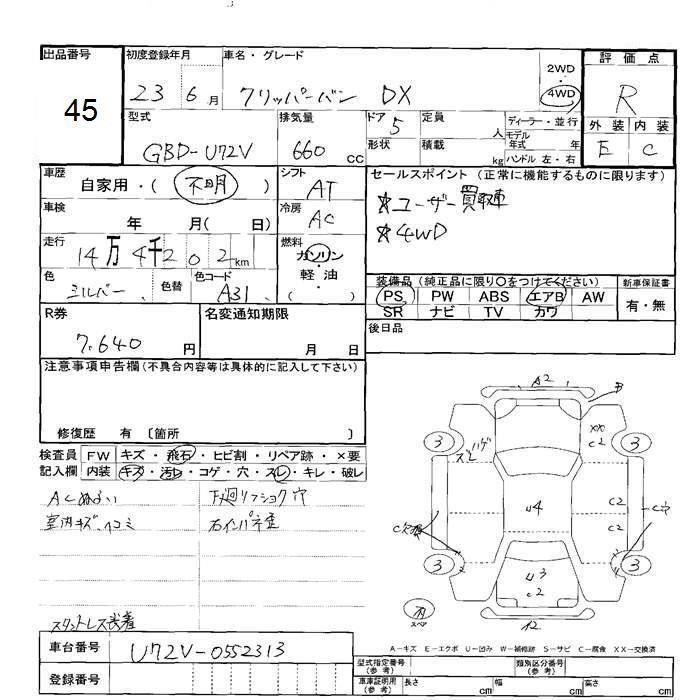 出品番号
45
初度登録年月
23 6月
車名・グレード
クリッパーバン DX
2WD
・
4WD
評価点
R
外装 内装
E C
型式
GBD-U72V
排気量
660 CC
ドア 5
形状
定員
人
積載
kg
ディーラー・並行
モデル
年式 年
ハンドル 左・右
車歴
自家用・( 不明 )
シフト
AT
車検
年 月( 日)
冷房
AC
走行
14万4千202km
燃料
ガソリン
・
軽油
・
( )
色
シルバー
色替
色コード
A31
セールスポイント(正常に機能するものに限ります)
☆ユーザー買取車
☆4WD
装備品(純正品に限り○をつけてください)
PS PW ABS エアB AW
SR ナビ TV カワ
新車保証書
有・無
後日品
R券
7.640円
名変通知期限
月 日
注意事項申告欄(不具合内容等は具体的に記入して下さい)
修復歴 有 〔箇所 〕
検査員
記入欄
FW キズ・飛石・ヒビ割・リペア跡・×要
内装 キズ・汚れ・コゲ・穴・スレ・キレ・破レ
室内キズ、
下廻リフショク穴
スタットレス装着
A2
B
XX
C2
3
3
ハゲ
U4
C2
C2
C穴
3
3
U3
C2
12
A-キズ E-エクボ U-凹み W-補修跡 S-サビ C-腐食 XX-交換済
車台番号
U72V-0552313
登録番号
型式指定番号
(参考)
類別区分番号
(参考)
車庫証明用
(参考)
長さ cm
幅 cm
高さ cm